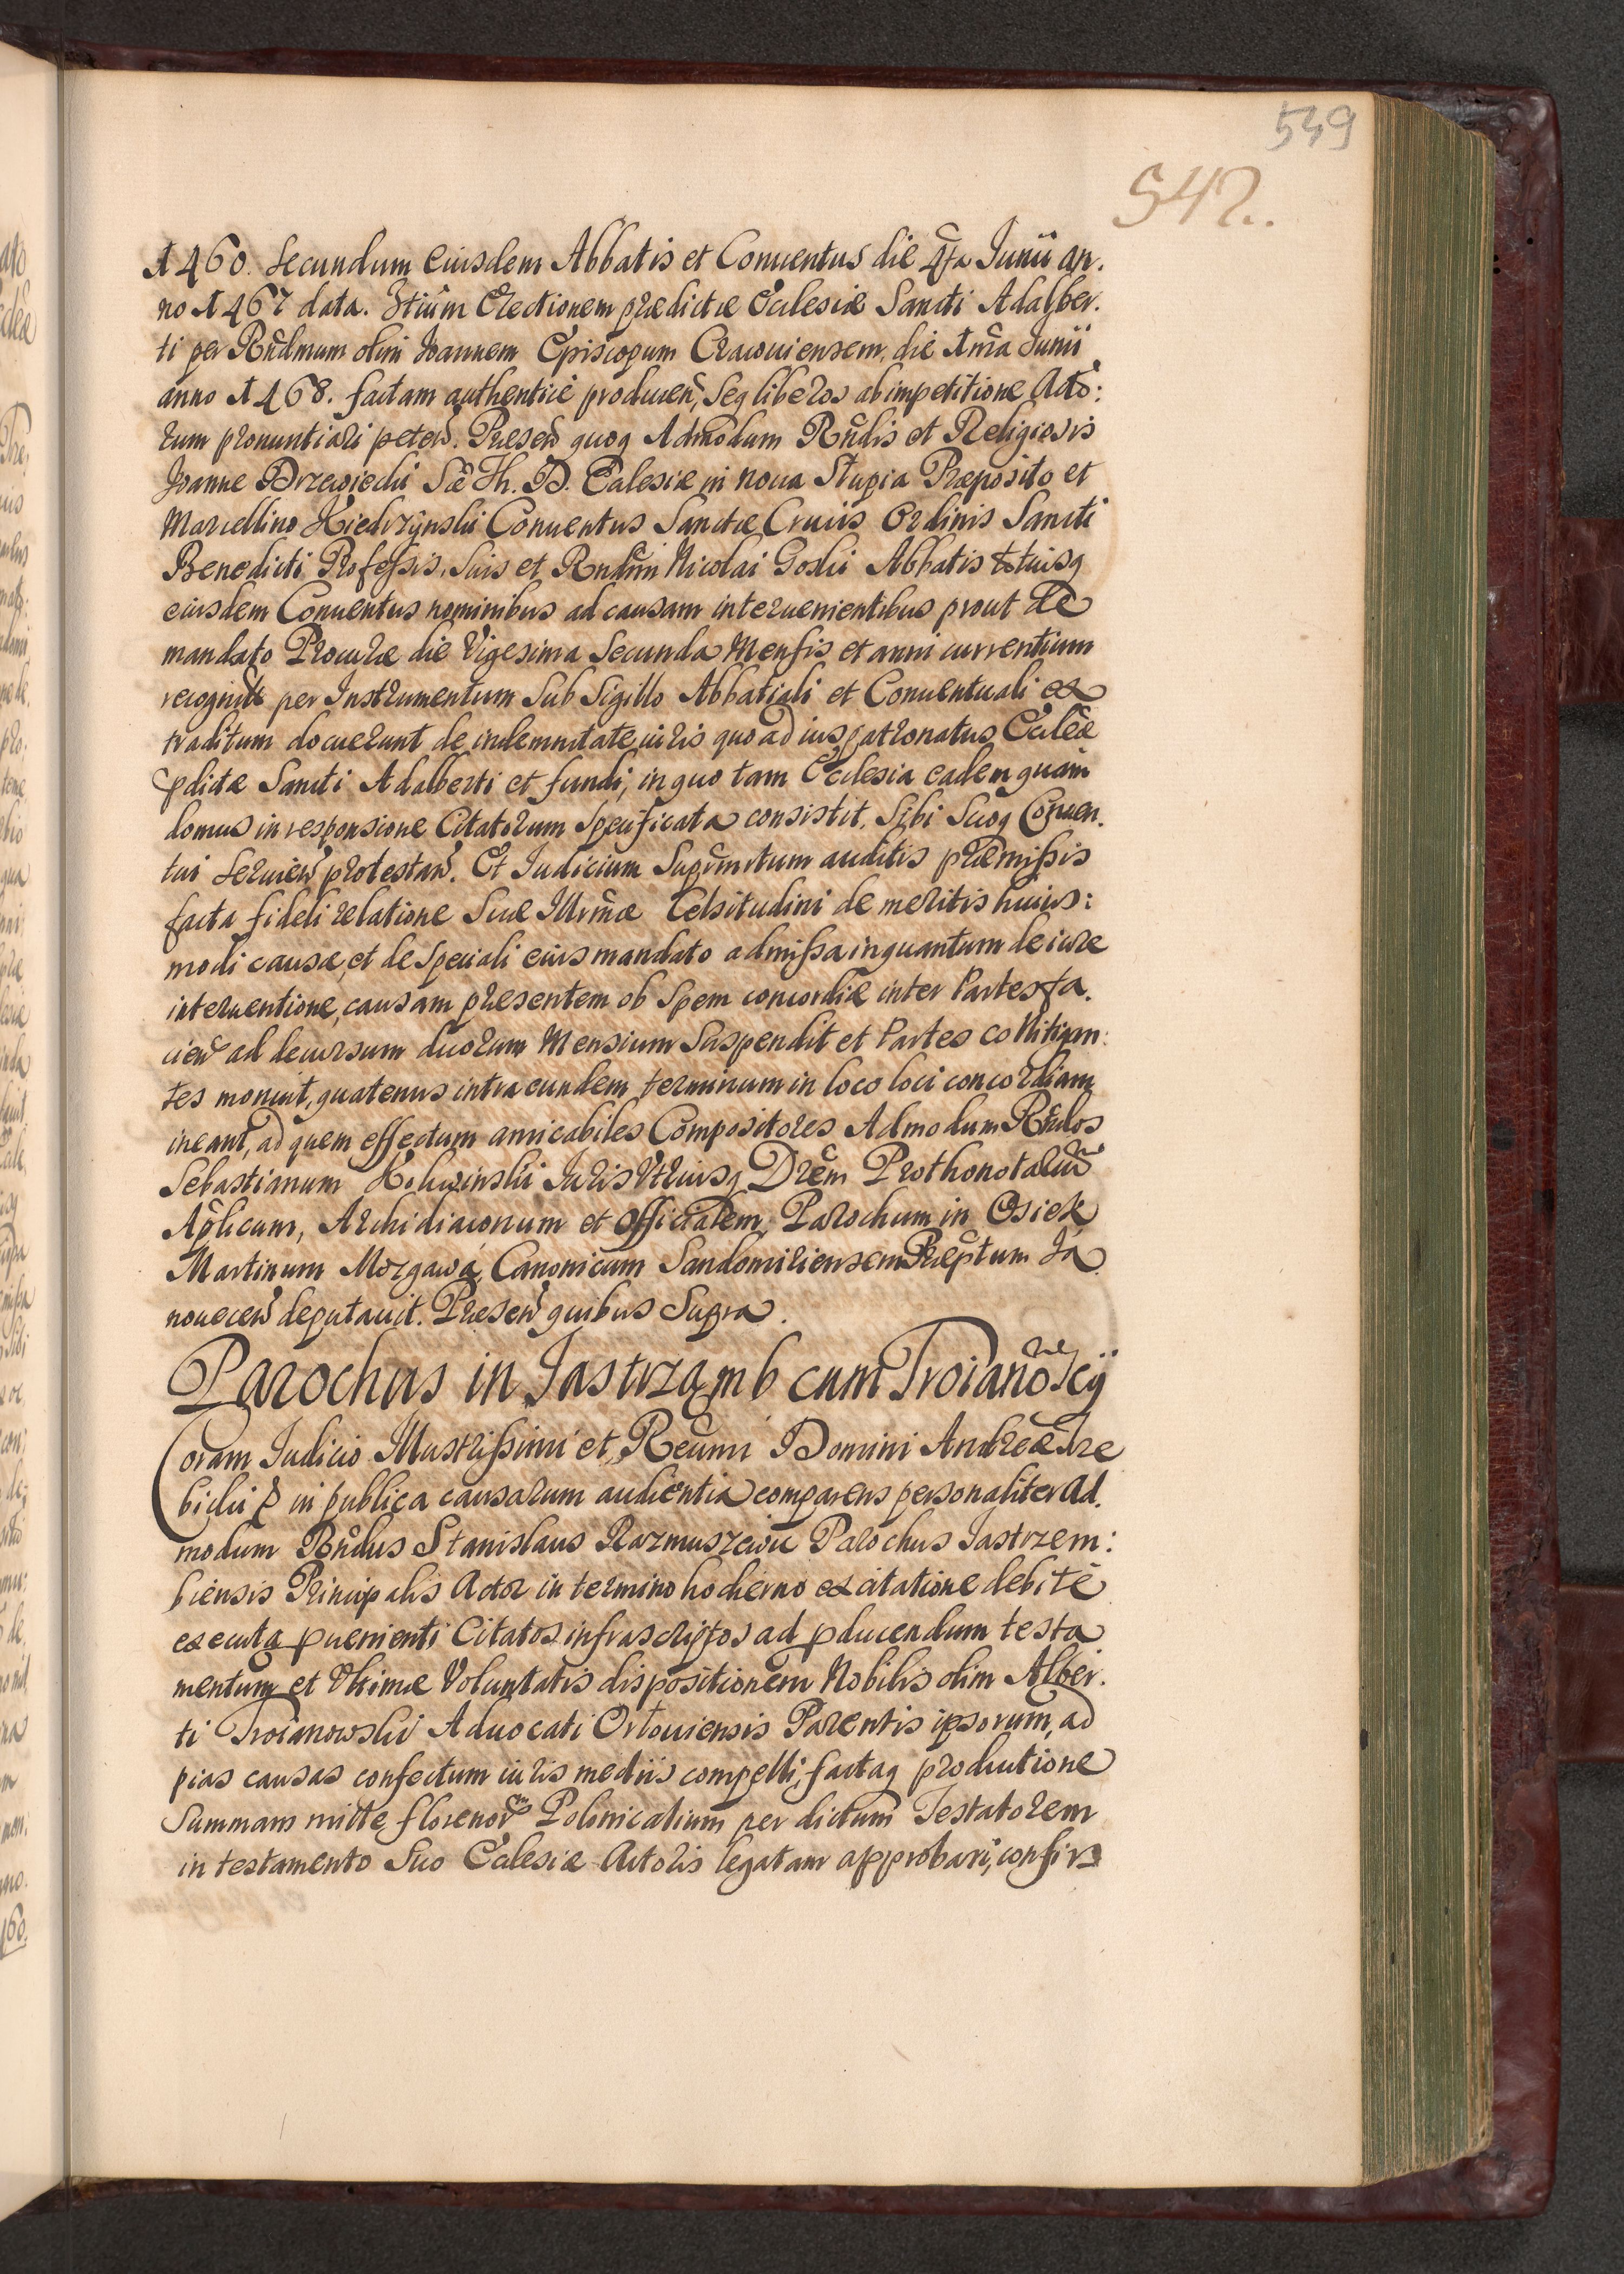 549
547.
1460. Secundum Eiusdem Abbatis et Conuentus die 4ta Junii an.
no 1467 data. 3tium Erectionem prædictæ Ecclesiæ Sancti Adalber.
ti per Rndmum olim Joannem Episcopum Cracouiensem, die 1ma Junii
anno 1468. factam authenticè producen, seq liberos ab impetitione Acto:
rum pronuntiari peten. Presen quoq Admodum Rndis et Religiosis
Joanne Drzewiecki Sæ Th. D. Ecclesiæ in noua Stupia Præposito et
Marcellino Kiedrzynski Conuentus Sanctæ Crucis Ordinis Sancti
Benedicti Professis, suis et Rndmi Nicolai Goski Abbatis totiusq
eiusdem Conuentus nominibus ad causam interuenientibus prout de
mandato Procuræ die Vigesima Secunda Mensis et anni currentium
recognito per Instrumentum Sub Sigillo Abbatiali et Conuentuali ex
traditum docuerunt de indemnitate iuris quo ad ius patronatus Ecclæ
pdictæ Sancti Adalberti et fundi, in quo tam Ecclesia eadem quam
domus in responsione Citatorum Specificata consistit, Sibi Suoq Conuen.
tui Seruien protestan. Et Judicium Suprmtum auditis præmissis
facta fideli relatione Suæ Illrmæ Celsitudini de meritis huius:
modi causæ, et de Speciali eius mandato admissa inquantum de iure
interuentione, causam presentem ob Spem concordiæ inter Partes fa.
cien ad decursum duorum Mensium Suspendit et Partes collitigan:
tes monuit, quatenus intra eundem terminum in loco loci concordiam
ineant, ad quem effectum amicabiles Compositores Admodum Rndos
Sebastianum Juris Vtriusq Drem Prothonotarium
Aplicum, Archidiaconum et Officialem, Parochum in Osiek
Martinum Morgawa, Canonicum Sandomiriensem Præptum Ja
nouecen deputauit. Presen quibus Supra.
Parochus in Jastrzamb cum Troianowscÿ
Coram Judicio Illustrissimi et Reumi Domini Andreæ Tre
bicki & in publica causarum audientia comparens personaliter Ad.
modum Rndus Stanislaus Razmuszewic Parochus Jastrzem:
biensis Principalis Actor in termino hodierno ex citatione debitè
executa puenienti Citatos infrascriptos ad pducendum testa
mentum et Vltimæ Voluntatis dispositionem Nobilis olim Alber.
ti Troianowski Aduocati Orłouiensis Parentis ipsorum, ad
pias causas confectum iuris mediis compelli, factaq productione
Summam mille florenorum Polonicalium per dictum Testatorem
in testamento Suo Ecclesiæ Actoris legatam approbari, confir